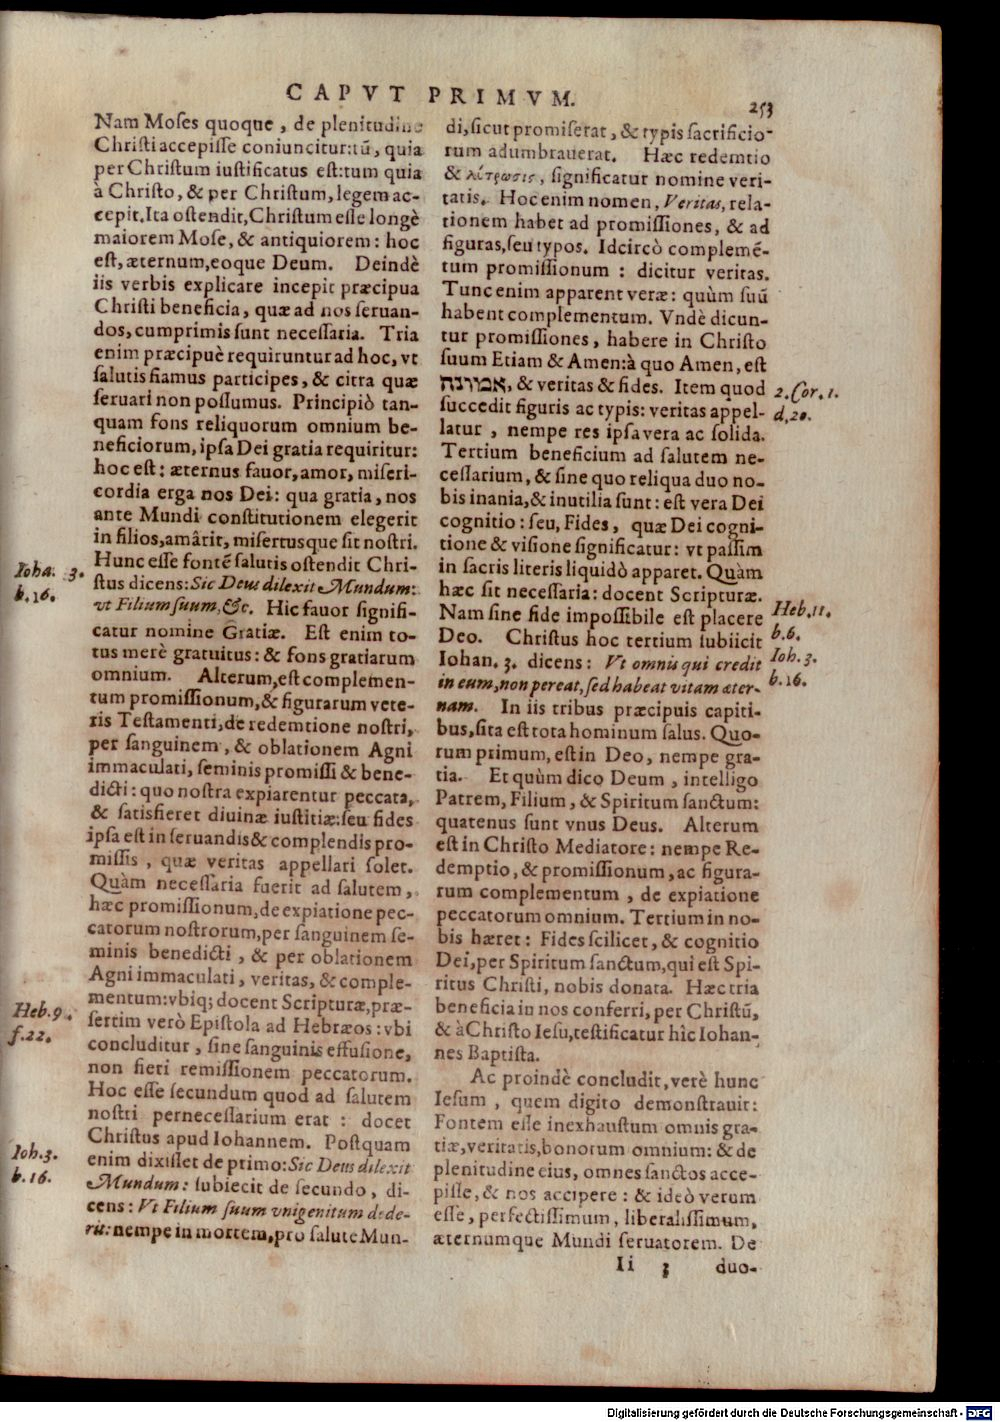 CAPVT PRIMVM.
253
Nam Moses quoque, de plenitudine
Christi accepisse coniuncitur: tū, quia
per Christum iustificatus est: tum quia
à Christo, & per Christum, legem ac-
cepit. Ita ostendit, Christum esse longè
maiorem Mose, & antiquiorem: hoc
est, æternum, eoque Deum. Deindè
iis verbis explicare incepit præcipua
Christi beneficia, quæ ad nos seruan-
dos, cumprimis sunt necessaria. Tria
enim præcipuè requiruntur ad hoc, vt
salutis fiamus participes, & citra quæ
seruari non possumus. Principiò tan-
quam fons reliquorum omnium be-
neficiorum, ipsa Dei gratia requiritur:
hoc est: æternus fauor, amor, miseri-
cordia erga nos Dei: qua gratia, nos
ante Mundi constitutionem elegerit
in filios, amârit, misertusque sit nostri.
Hunc esse fontē salutis ostendit Chri-
stus dicens: Sic Deus dilexit Mundum:
vt Filium suum, &c. Hic fauor signifi-
catur nomine Gratiæ. Est enim to-
tus merè gratuitus: & fons gratiarum
omnium. Alterum, est complemen-
tum promissionum, & figurarum vete-
ris Testamenti, de redemtione nostri,
per sanguinem, & oblationem Agni
immaculati, seminis promissi & bene-
dicti: quo nostra expiarentur peccata,
& satisfieret diuinæ iustitiæ: seu fides
ipsa est in seruandis & complendis pro-
missis, quæ veritas appellari solet.
Quàm necessaria fuerit ad salutem,
hæc promissionum, de expiatione pec-
catorum nostrorum, per sanguinem se-
minis benedicti, & per oblationem
Agni immaculati, veritas, & comple-
mentum: vbiq; docent Scripturæ, præ-
sertim verò Epistola ad Hebræos: vbi
concluditur, sine sanguinis effusione,
non fieri remissionem peccatorum.
Hoc esse secundum quod ad salutem
nostri pernecessarium erat: docet
Christus apud Iohannem. Postquam
enim dixisset de primo: Sic Deus dilexit
Mundum: subiecit de secundo, di-
cens: Vt Filium suum vnigenitum dede-
rit: nempe in mortem, pro salute Mun-
Ioha. 3.
b. 16.
Heb. 9.
f. 22.
Ioh. 3.
b. 16.
di, sicut promiserat, & typis sacrificio-
rum adumbrauerat. Hæc redemtio
& λύτρωσις, significatur nomine veri-
tatis. Hoc enim nomen, Veritas, rela-
tionem habet ad promissiones, & ad
figuras, seu typos. Idcircò complemē-
tum promissionum: dicitur veritas.
Tunc enim apparent veræ: quùm suū
habent complementum. Vndè dicun-
tur promissiones, habere in Christo
suum Etiam & Amen: à quo Amen, est
אמונה, & veritas & fides. Item quod
succedit figuris ac typis: veritas appel-
latur, nempe res ipsa vera ac solida.
Tertium beneficium ad salutem ne-
cessarium, & sine quo reliqua duo no-
bis inania, & inutilia sunt: est vera Dei
cognitio: seu, Fides, quæ Dei cogni-
tione & visione significatur: vt passim
in sacris literis liquidò apparet. Quàm
hæc sit necessaria: docent Scripturæ.
Nam sine fide impossibile est placere
Deo. Christus hoc tertium subiicit
Iohan. 3. dicens: Vt omnis qui credit
in eum, non pereat, sed habeat vitam æter-
nam. In iis tribus præcipuis capiti-
bus, sita est tota hominum salus. Quo-
rum primum, est in Deo, nempe gra-
tia. Et quùm dico Deum, intelligo
Patrem, Filium, & Spiritum sanctum:
quatenus sunt vnus Deus. Alterum
est in Christo Mediatore: nempe Re-
demptio, & promissionum, ac figura-
rum complementum, de expiatione
peccatorum omnium. Tertium in no-
bis hæret: Fides scilicet, & cognitio
Dei, per Spiritum sanctum, qui est Spi-
ritus Christi, nobis donata. Hæc tria
beneficia in nos conferri, per Christū,
& à Christo Iesu, testificatur hîc Iohan-
nes Baptista.
Ac proindè concludit, verè hunc
Iesum, quem digito demonstrauit:
Fontem esse inexhaustum omnis gra-
tiæ, veritatis, bonorum omnium: & de
plenitudine eius, omnes sanctos acce-
pisse, & nos accipere: & ideò verum
esse, perfectissimum, liberalissimum,
æternumque Mundi seruatorem. De
2. Cor. 1.
d, 20.
Heb. 11.
b. 6.
Ioh. 3.
b. 16.
Ii 3 duo-
Digitalisierung gefördert durch die Deutsche Forschungsgemeinschaft - DFG